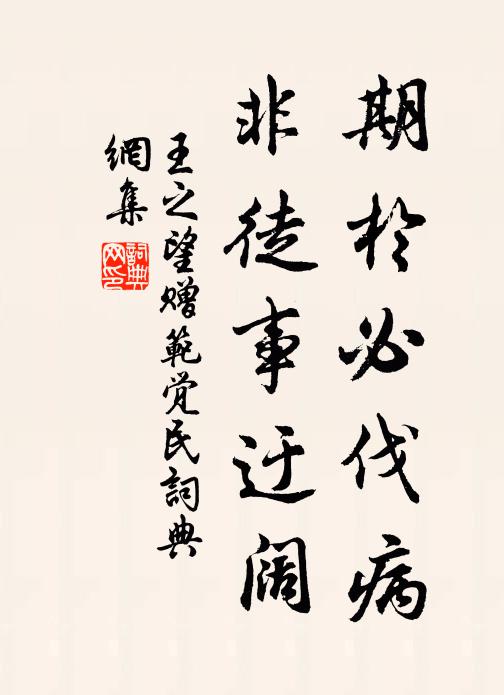 期於必伐病
非徒事迂阔
王之望赠範觉民詞典
網集
詞典
网印